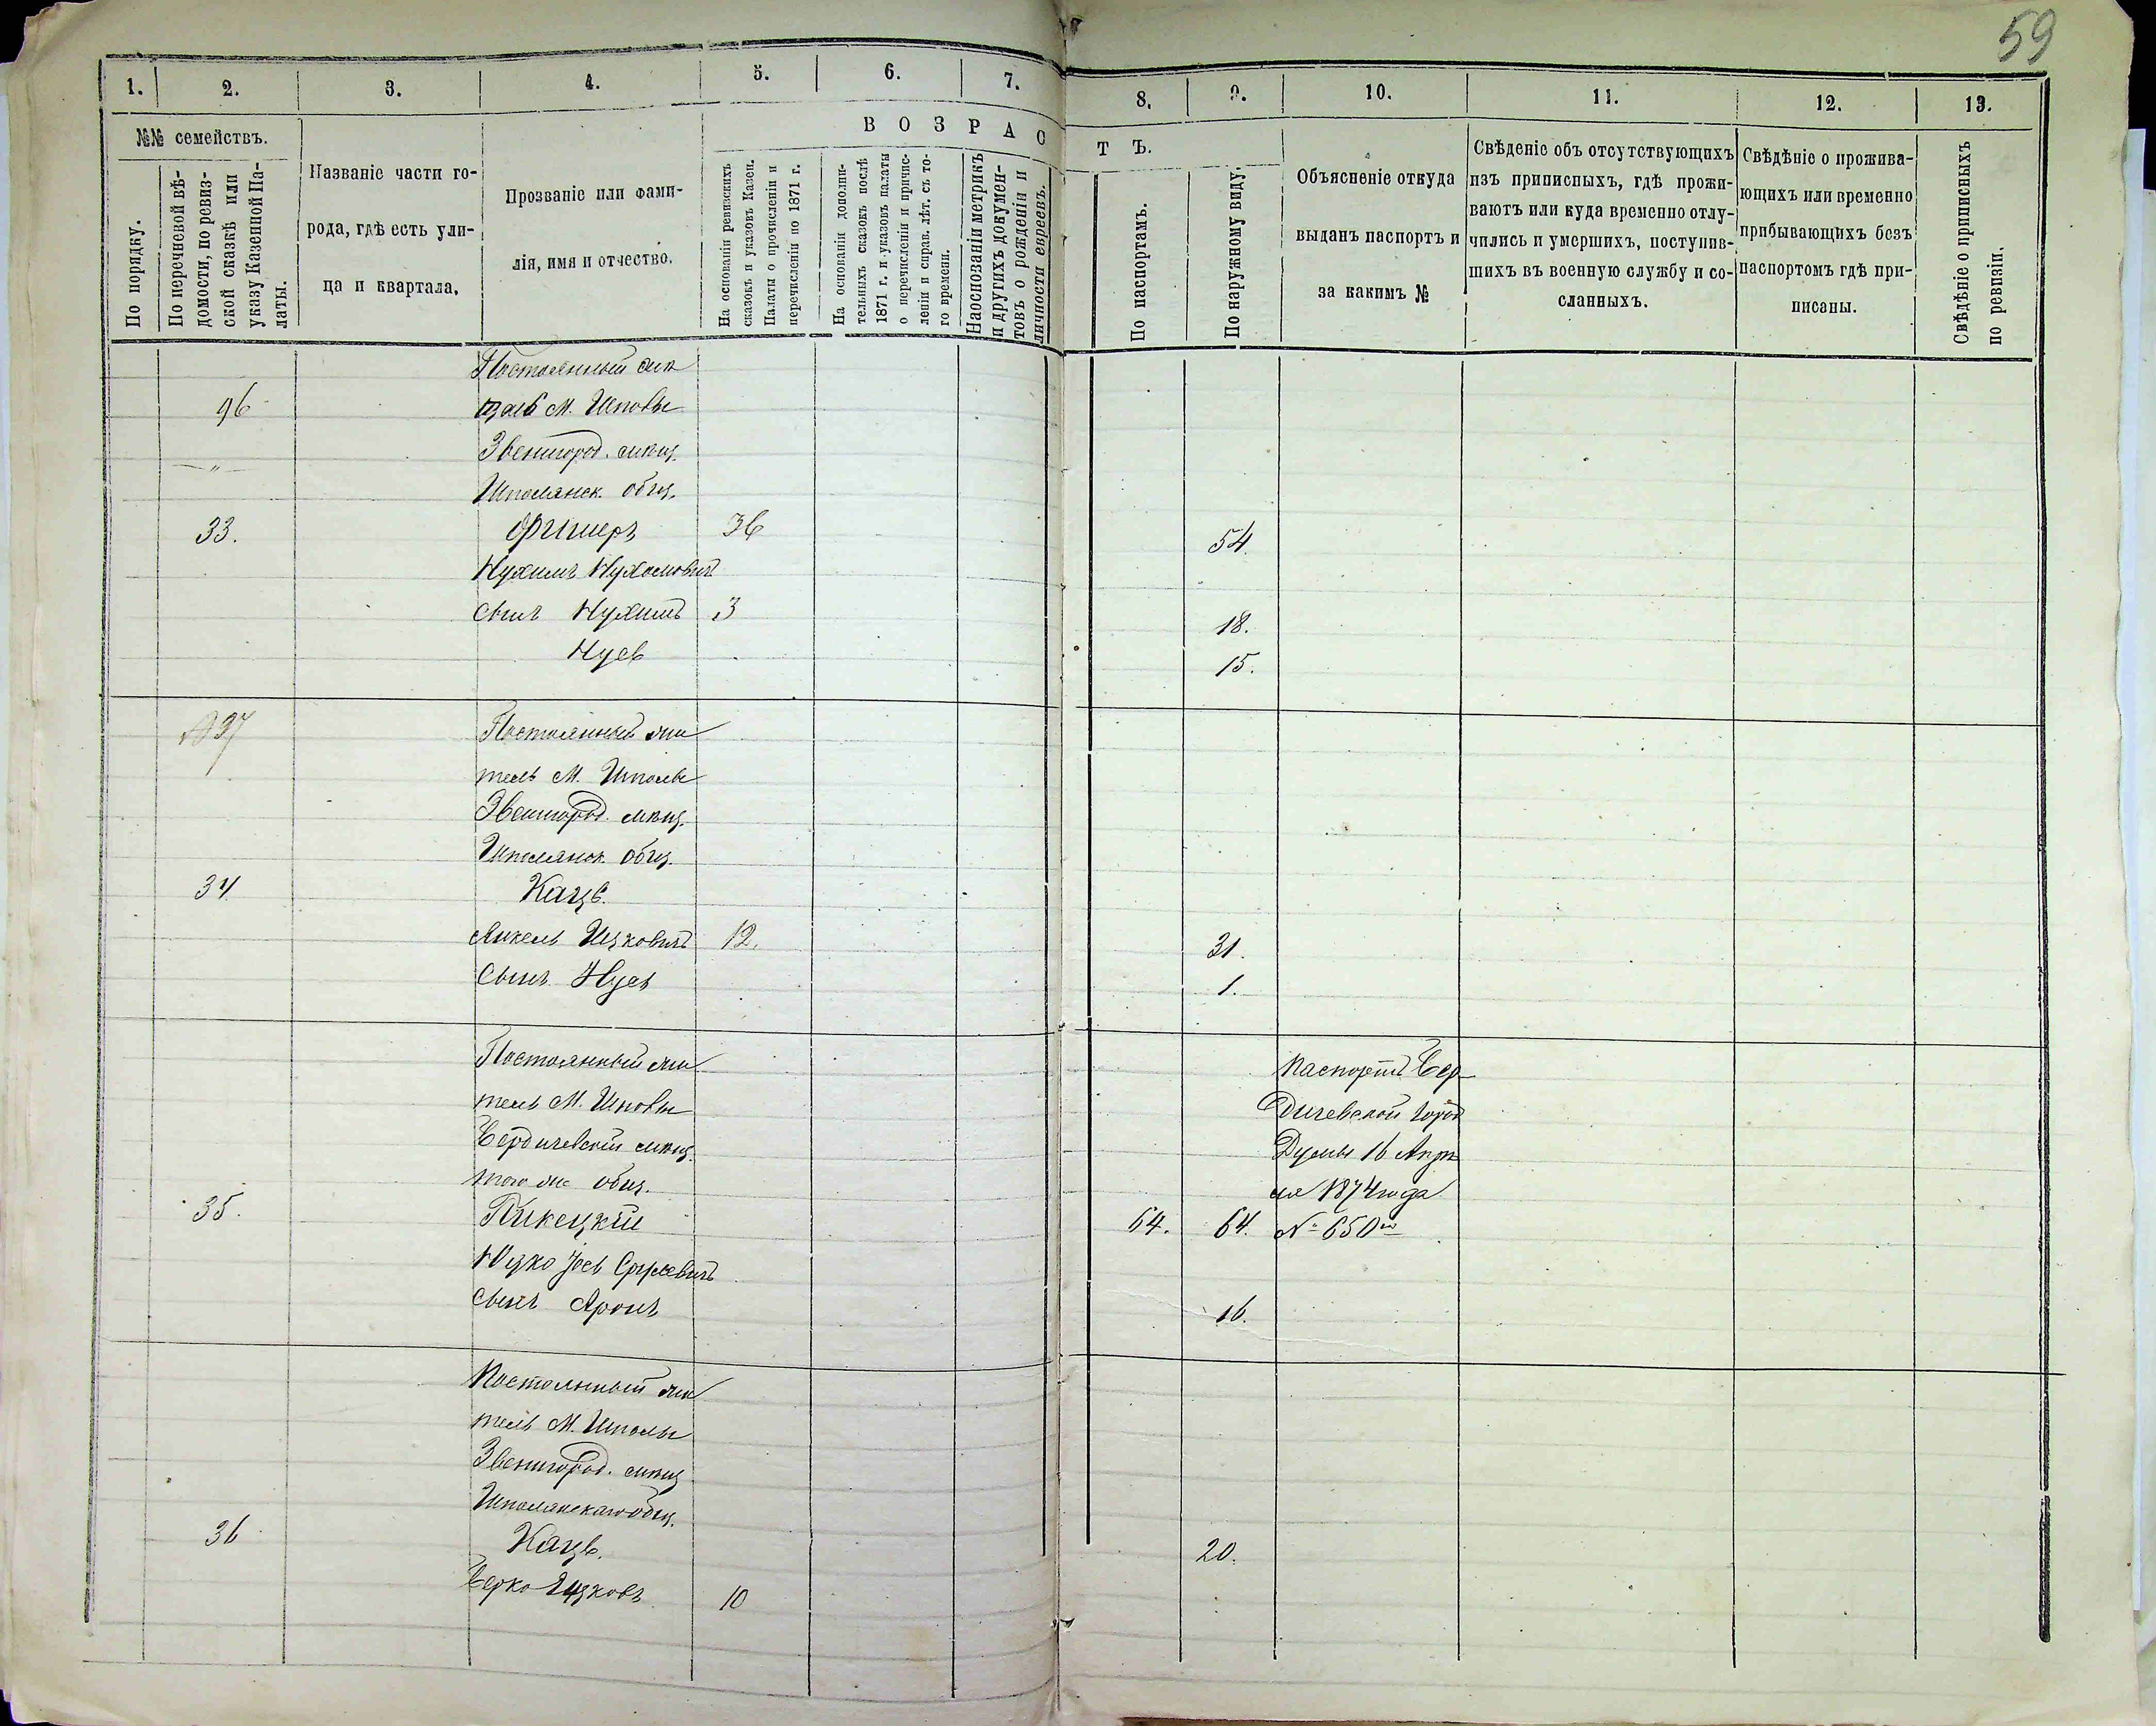 59
1. 2. 3. 4. 5. 6. 7. 8. 9. 10. 11. 12. 13.
№№ семействъ.
По порядку.
По перечневой вѣ-
домости, по ревиз-
ской сказкѣ или
указу Казенной Па-
латы.
Названіе части го-
рода, гдѣ есть ули-
ца и квартала.
Прозваніе или фами-
лія, имя и отчество.
ВОЗРАСТЪ.
На основаніи ревизскихъ
сказокъ и указовъ Казен.
Палаты о прочисленіи и
перечисленіи по 1871 г.
На основаніи дополни-
тельныхъ сказокъ послѣ
1871 г. и указовъ палаты
о перечисленіи и причис-
леніи и справ. лѣт. съ то-
го времени.
На основаніи метрикъ
и другихъ докумен-
товъ о рожденіи и
личности евреевъ.
По паспортамъ.
По наружному виду.
Объясненіе откуда
выданъ паспортъ и
за какимъ №
Свѣденіе объ отсутствующихъ
изъ приписныхъ, гдѣ прожи-
ваютъ или куда временно отлу-
чились и умершихъ, поступив-
шихъ въ военную службу и со-
сланныхъ.
Свѣдѣніе о прожива-
ющихъ или временно
прибывающихъ безъ
паспортомъ гдѣ при-
писаны.
Свѣдѣніе о приписныхъ
по ревизіи.
Постоянный жи
96 тель М. Шполы
Звенигород. мѣщ.
Шполянск. общ.
33. Фишеръ 36 54.
Нухимъ Нухомовичъ
сынъ Нухимъ 3 18.
Нусь 15.
97 Постоянный жи
тель М. Шполы
Звенигород. мѣщ.
Шполянск. общ.
34 Кацъ.
Янкель Ицковичъ 12. 31.
Сынъ Нусь 1.
Постоянный жи Паспортъ Бер
тель М. Шполы дичевской город
Бердичевскій мѣщ. Думы 16 Апрѣ
того же общ. ля 1874 года
35. 64. 64. № 650
сынъ Аронъ 16.
Постоянный жи
тель М. Шполы
Звенигород. мѣщ
Шполянскаго общ.
36 Кацъ. 20.
Берко Ицковъ 10